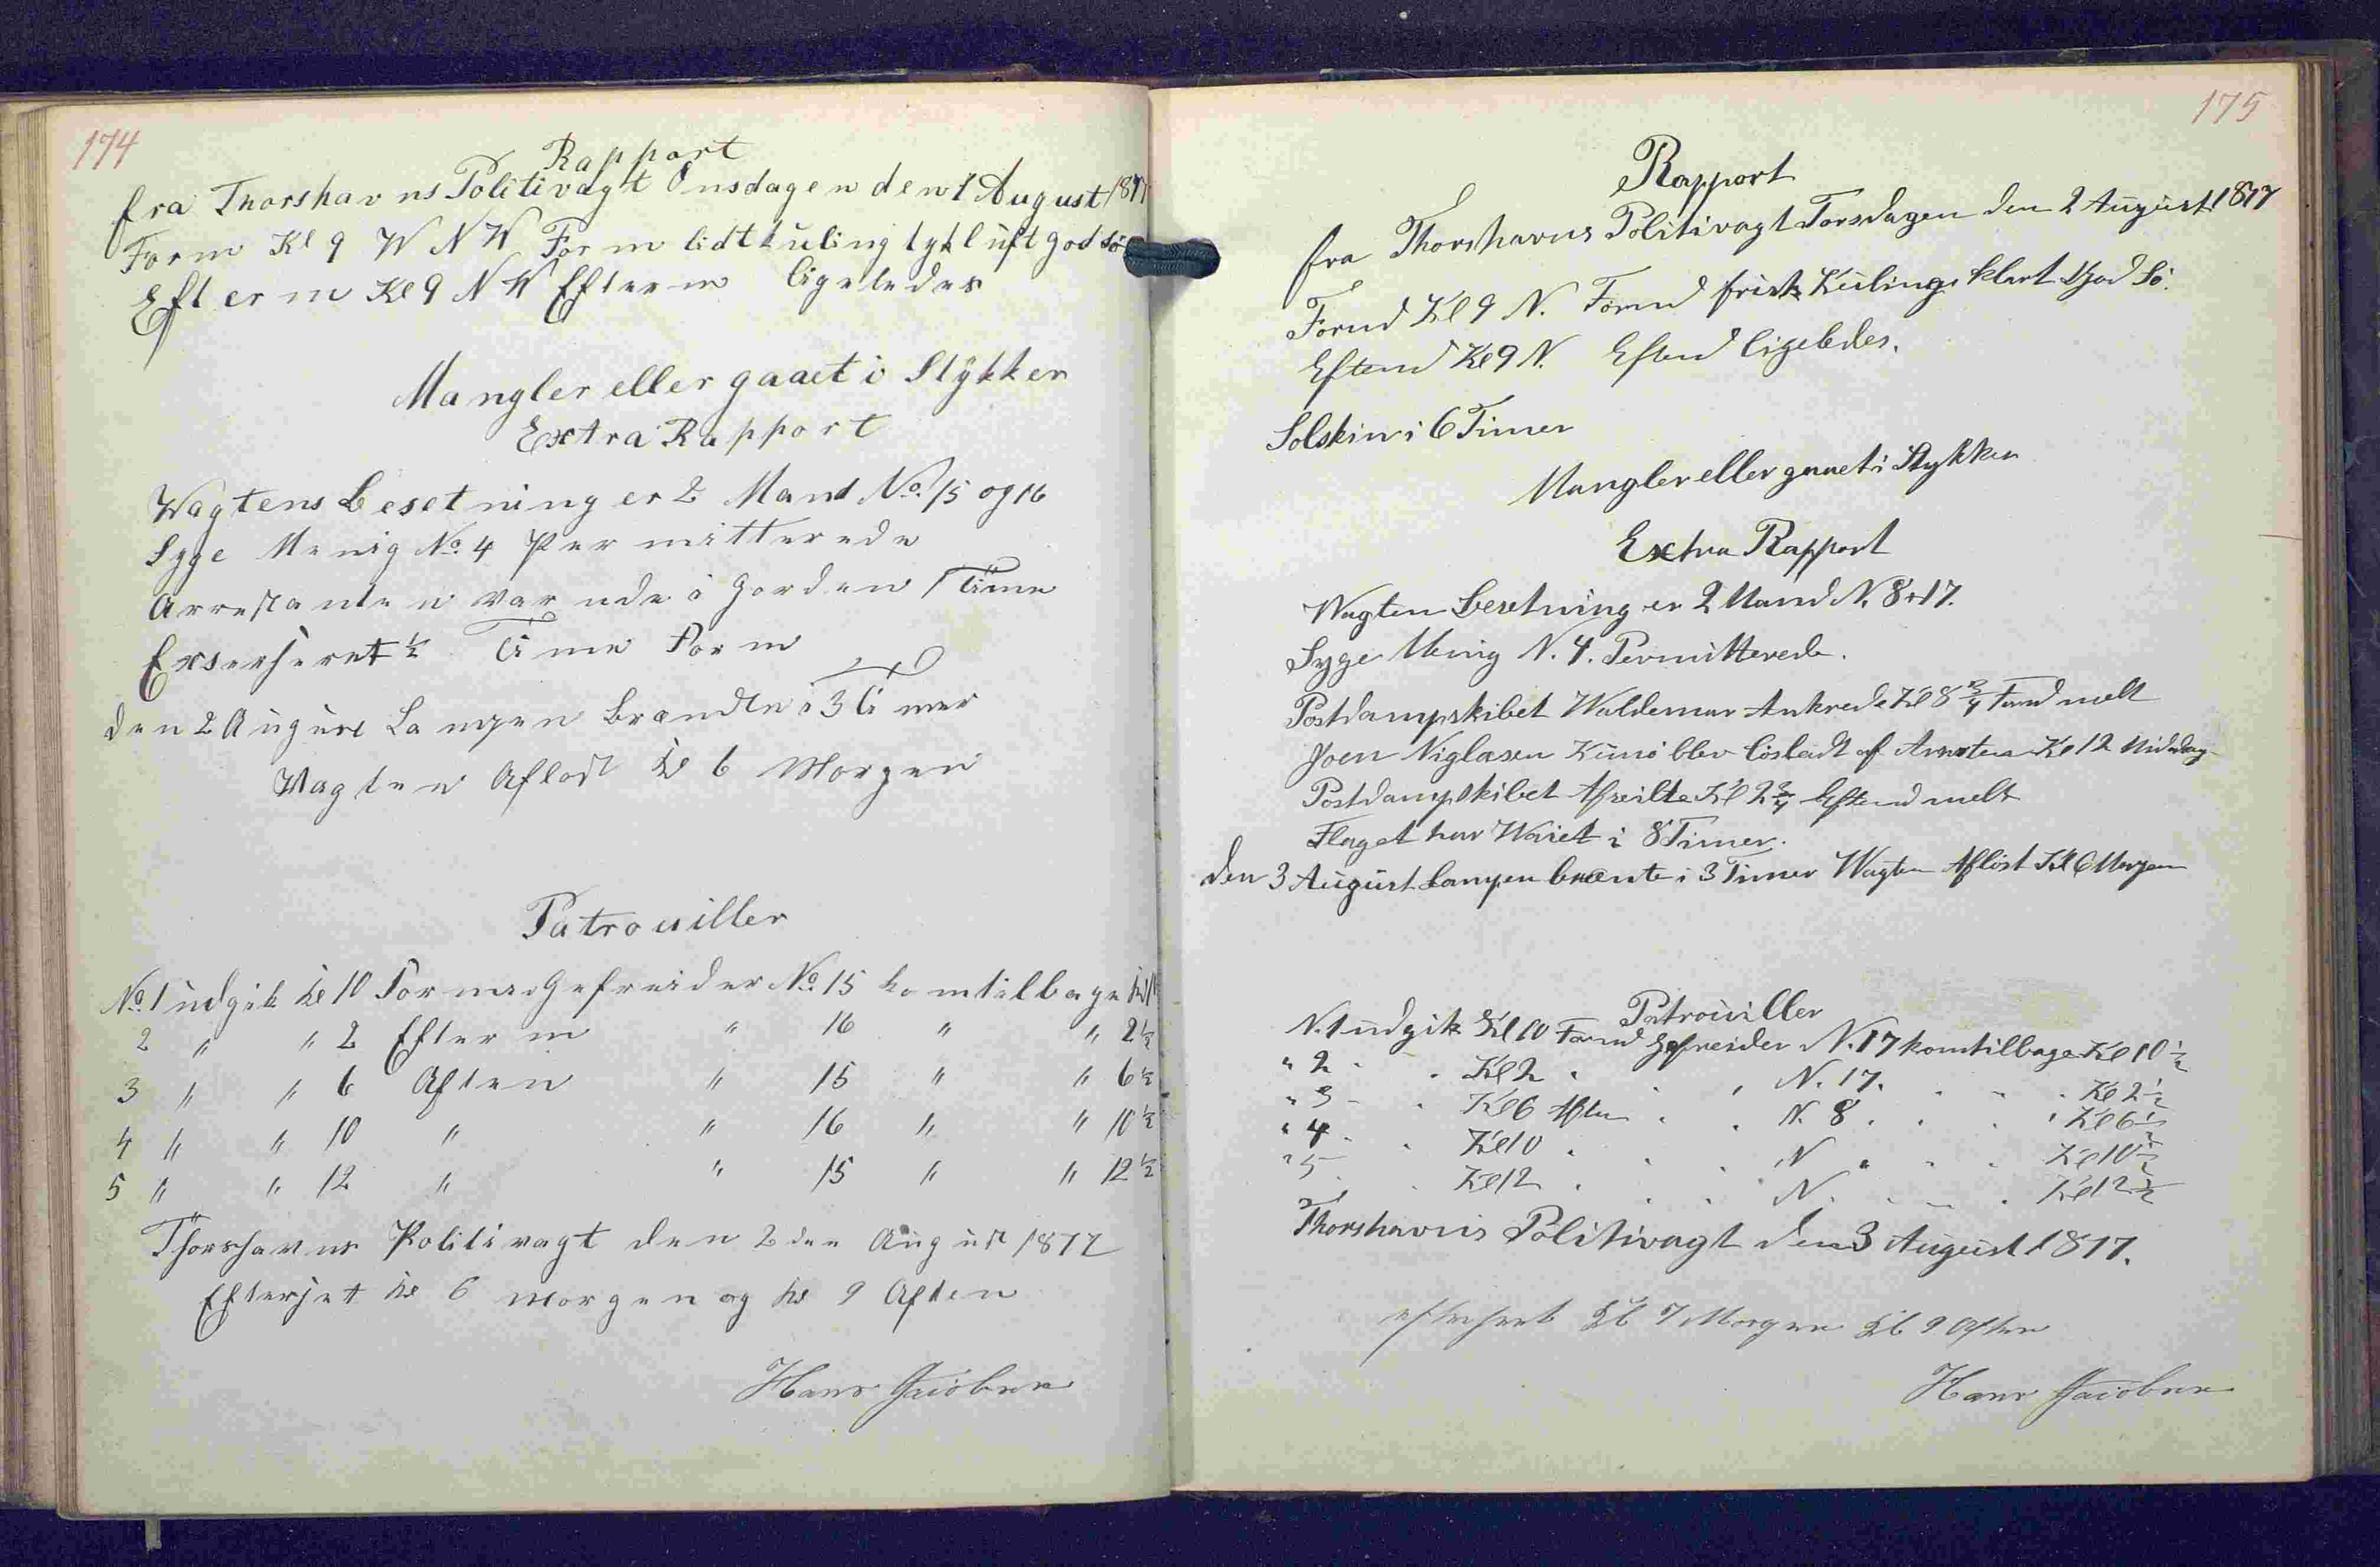 174
Rapport
fra Thorshavns Politivagt Onsdagen den 1 August 187
Form Kl 9 W N W Form lidt kuling tykluft god sö
Efterm Kl 9 N W Efterm ligeledes
Mangler eller gaaet i Stÿkker
Extra Rapport
Wagtens Besetning er 2 Mand No. 15 og 16
Syge Menig No. 4 Permitterede
Arrestanten var ude i Gorden 1 Time
Exserseret ½ Time Form
den 2 August Lampen brændte i 3 Timer
Wagten Aflöst Kl 6 Morgen
Patrouiller
No. 1 udgik Kl 10 Form Gefreider No. 15 komtilbage
2 " " 2 Efterm " 16 " " 2½
3 " " 6 Aften " 15 " " 6½
4 " " 10 " " 16 " " 10½
5 " " 12 " " 15 " " 12½
Thorshavns Politivagt den 2den August 1877
Efterset Kl 6 morgen og Kl 9 Aften
Hans Jacobsen
175
Rapport
fra Thorshavns Politivagt Torsdagen den 2 August 1877
Formd Kl 9 N. Formd frisk Kuling klart God Sö.
Eftemd Kl 9 N. Eftemd ligeledes.
Solskin i 6 Timer
Mangler eller gaaet i Stykker
Extra Rapport
Wagten Besetning er 2 Mand N. 8 + 17.
Syge Menig N. 4. Permitterede.
Postdampskibet Waldemar Ankrede Kl 8¾ Formd
Joen Niglasen Kunö blev lösladt af Arresten Kl 12 Middag
Postdampskibet Afreilte Kl 2¾ Eftemd
Flaget har Waiet i 8 Timer.
den 3 August Lampen brænte i 3 Timer Wagten Aflöst Kl 6 Morgen
Patrouiller
N. 1 udgik Kl 10 Formd Gefreider N. 17 komtilbage Kl 10½
" 2 - - Kl 2 . . . N. 17. . - - Kl 2½
" 3 - . Kl 6 Aften . . N. 8 . . . Kl 6½
" 4 - . Kl 10 . . . N " - - Kl 10½
" 5 . . Kl 12 . . . N. . - . Kl 12½
Thorshavns Politivagt den 3 August 1877.
efterseet Kl 7 Morgen Kl 9 Aften
Hans Jacobsen